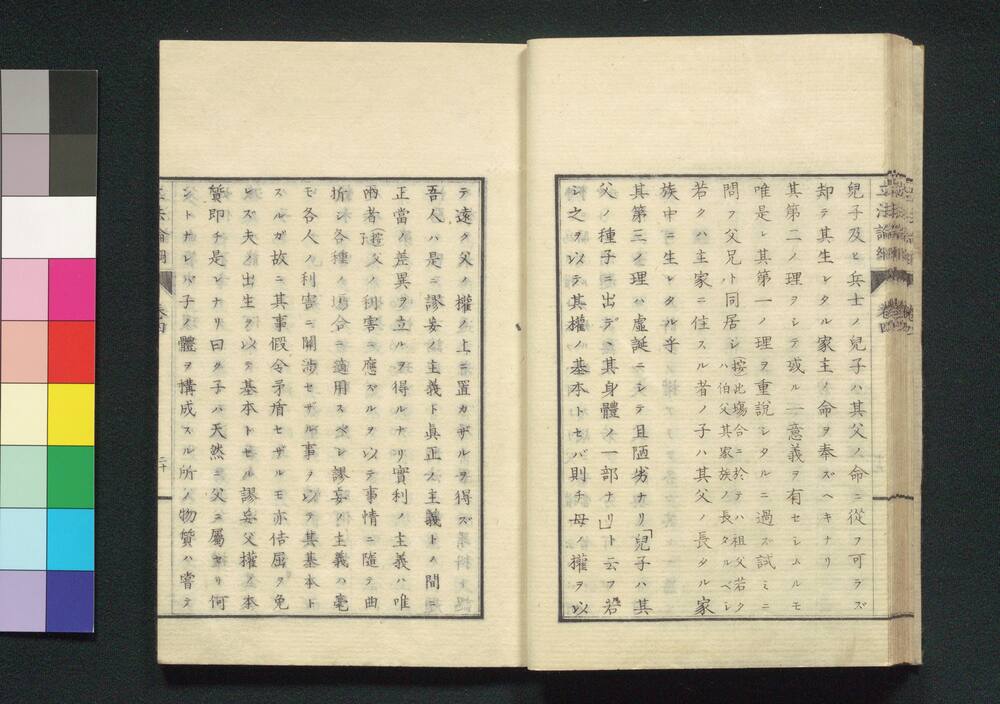 兒子及ヒ兵士ノ兒子ハ其父ノ命ニ從フ可ラズ
却テ其生レタル家主ノ命ヲ奉ズヘキナリ
其第二ノ理ヲシテ或ル一意義ヲ有セシムルモ
唯是レ其第一ノ理ヲ重說シタルニ過ス試ミニ
問フ父兄ト同居シ
按此塲合ニ於テハ祖父若ク
ハ伯父其家族ノ長タルベシ
若クハ主家ニ住スル者ノ子ハ其父ノ長タル家
族中ニ生レタル乎
其第三ノ理ハ虛誕ニシテ且陋劣ナリ「兒子ハ其
父ノ種子ニ出デヽ其身體ノ一部ナリ」ト云フ若
シ之ヲ以テ其權ノ基本トセバ則チ母ノ權ヲ以
テ遠ク父ノ權ノ上ニ置カザルヲ得ズ
吾人ハ是ニ謬妄ノ主義ト眞正ノ主義トノ間ニ
正當ノ差異ヲ立ルヲ得ルナリ實利ノ主義ハ唯
兩者
按父
子
ノ利害ニ應ズルヲ以テ事情ニ隨テ曲
折シ各種ノ塲合ニ適用スベシ謬妄ノ主義ハ毫
モ各人ノ利害ニ關涉セザル事ヲ以テ其基本ト
スルガ故ニ其事假令矛盾セザルモ亦佶屈ヲ免
レズ夫ノ出生ヲ以テ基本トセル謬妄父權ノ本
質即チ是レナリ曰ク子ハ天然ニ父ニ屬セリ何
ントナレバ子ノ體ヲ構成スル所ノ物質ハ嘗テ
立法論綱
卷四
二十